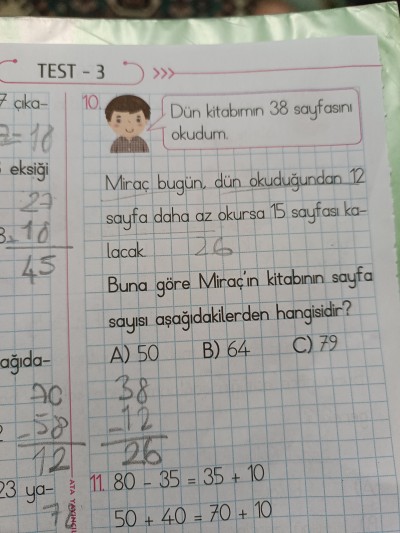 TEST - 3
7 çıka-
eksiği
27
18
45
ağıda-
70
- 58
12
23 ya-
10.
Dün kitabımın 38 sayfasını
okudum.
Miraç bugün, dün okuduğundan 12
sayfa daha az okursa 15 sayfası ka-
lacak.
26
Buna göre Miraç'ın kitabının sayfa
sayısı aşağıdakilerden hangisidir?
A) 50 B) 64 C) 79
38
- 12
26
11. 80 - 35 = 35 + 10
50 + 40 = 70 + 10